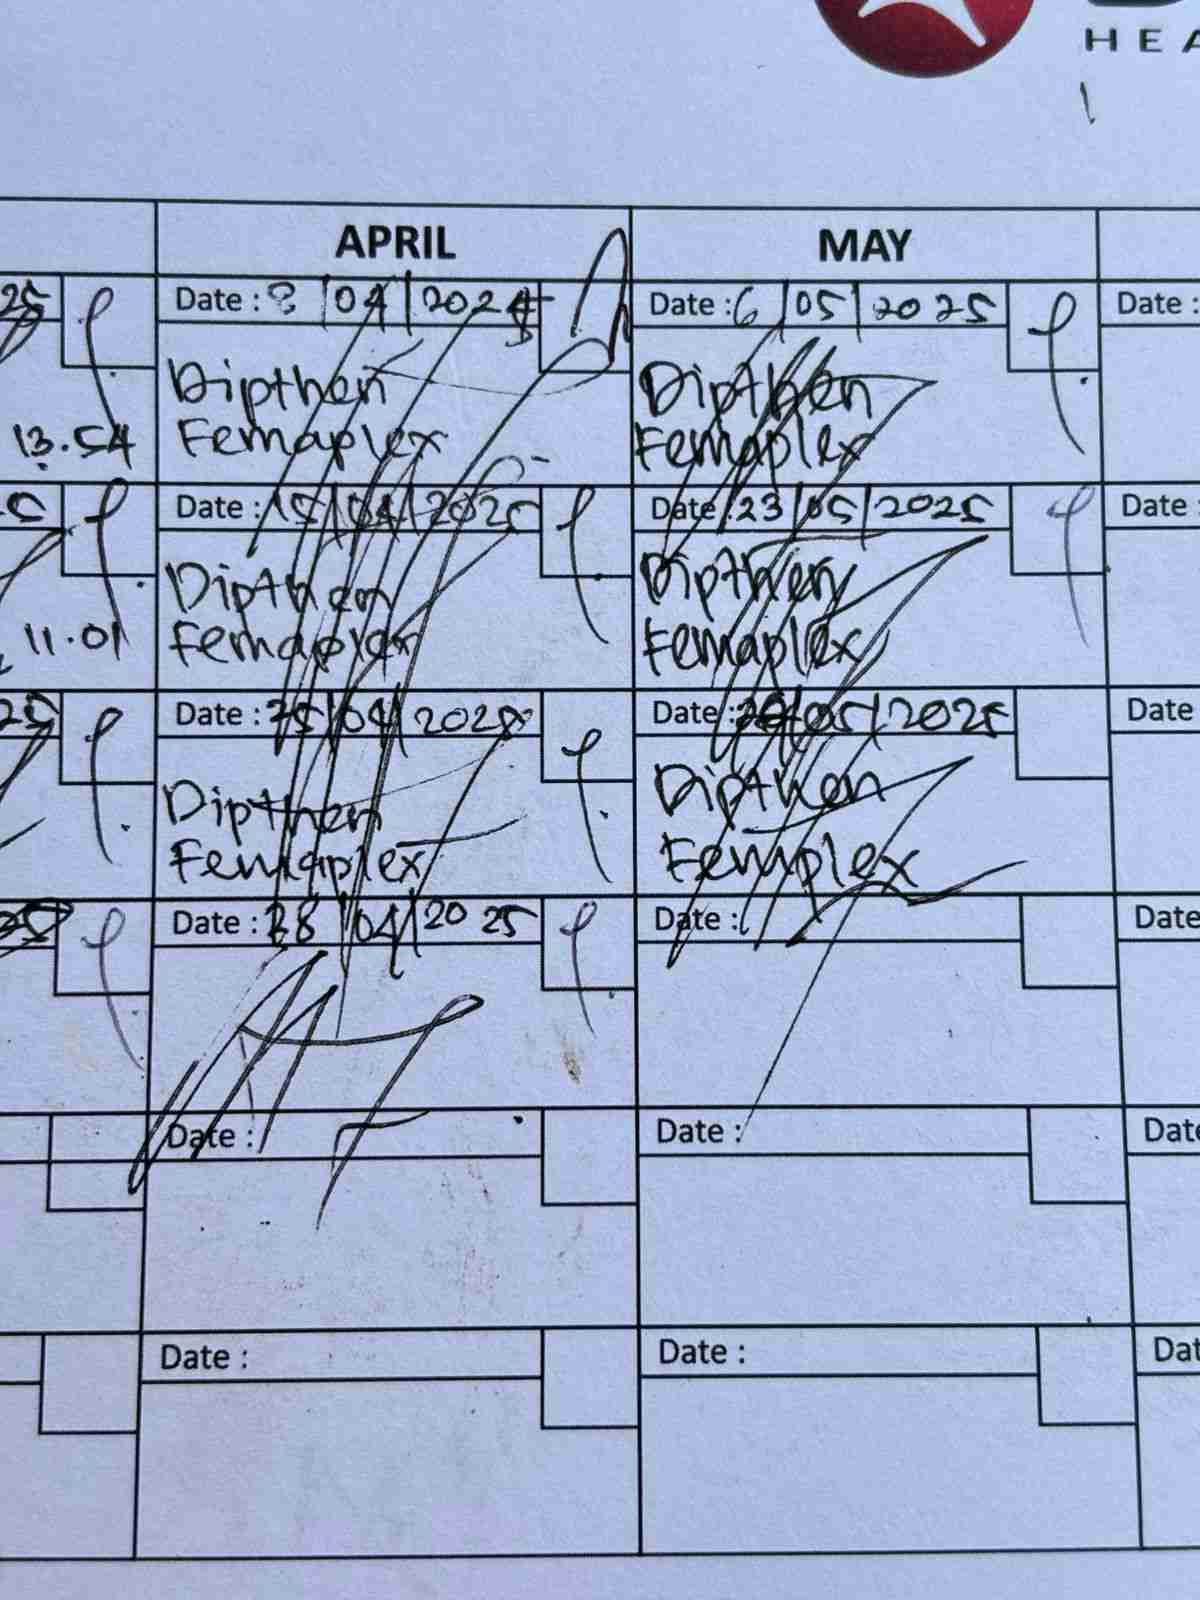 HEA
APRIL
MAY
25
Date : 8/04/2025
Date : 6/05/2025
Date :
Dipthen
Femaplex
Dipthen
Femaplex
13.54
Date : 15/04/2025
Date : 23/05/2025
Date
Dipthen
Femaplex
Dipthen
Femaplex
11.01
25
Date : 25/04/2025
Date : /05/2025
Date
Dipthen
Femaplex
Dipthen
Femplex
25
Date : 28/04/2025
Date :
Date
Date :
Date :
Date
Date :
Date :
Dat